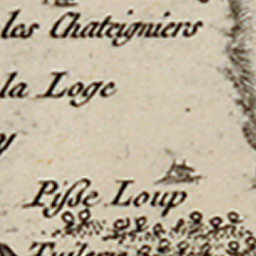 les Chateigniers
la Loge
y
Piſſe Loup